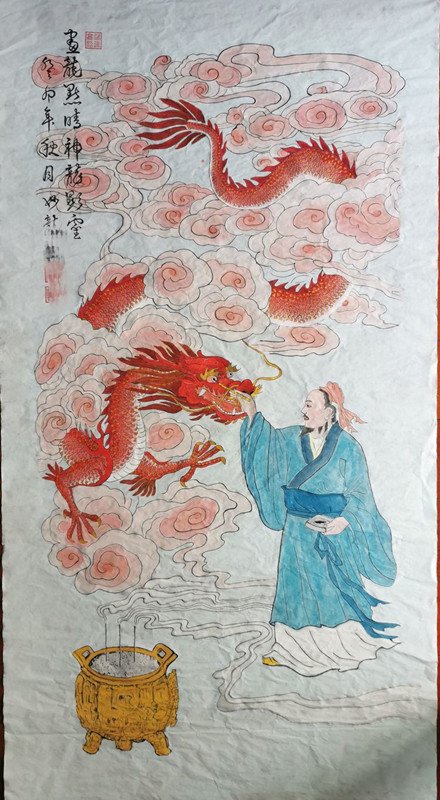 畫龍點睛神龍顯靈
癸卯年秋月